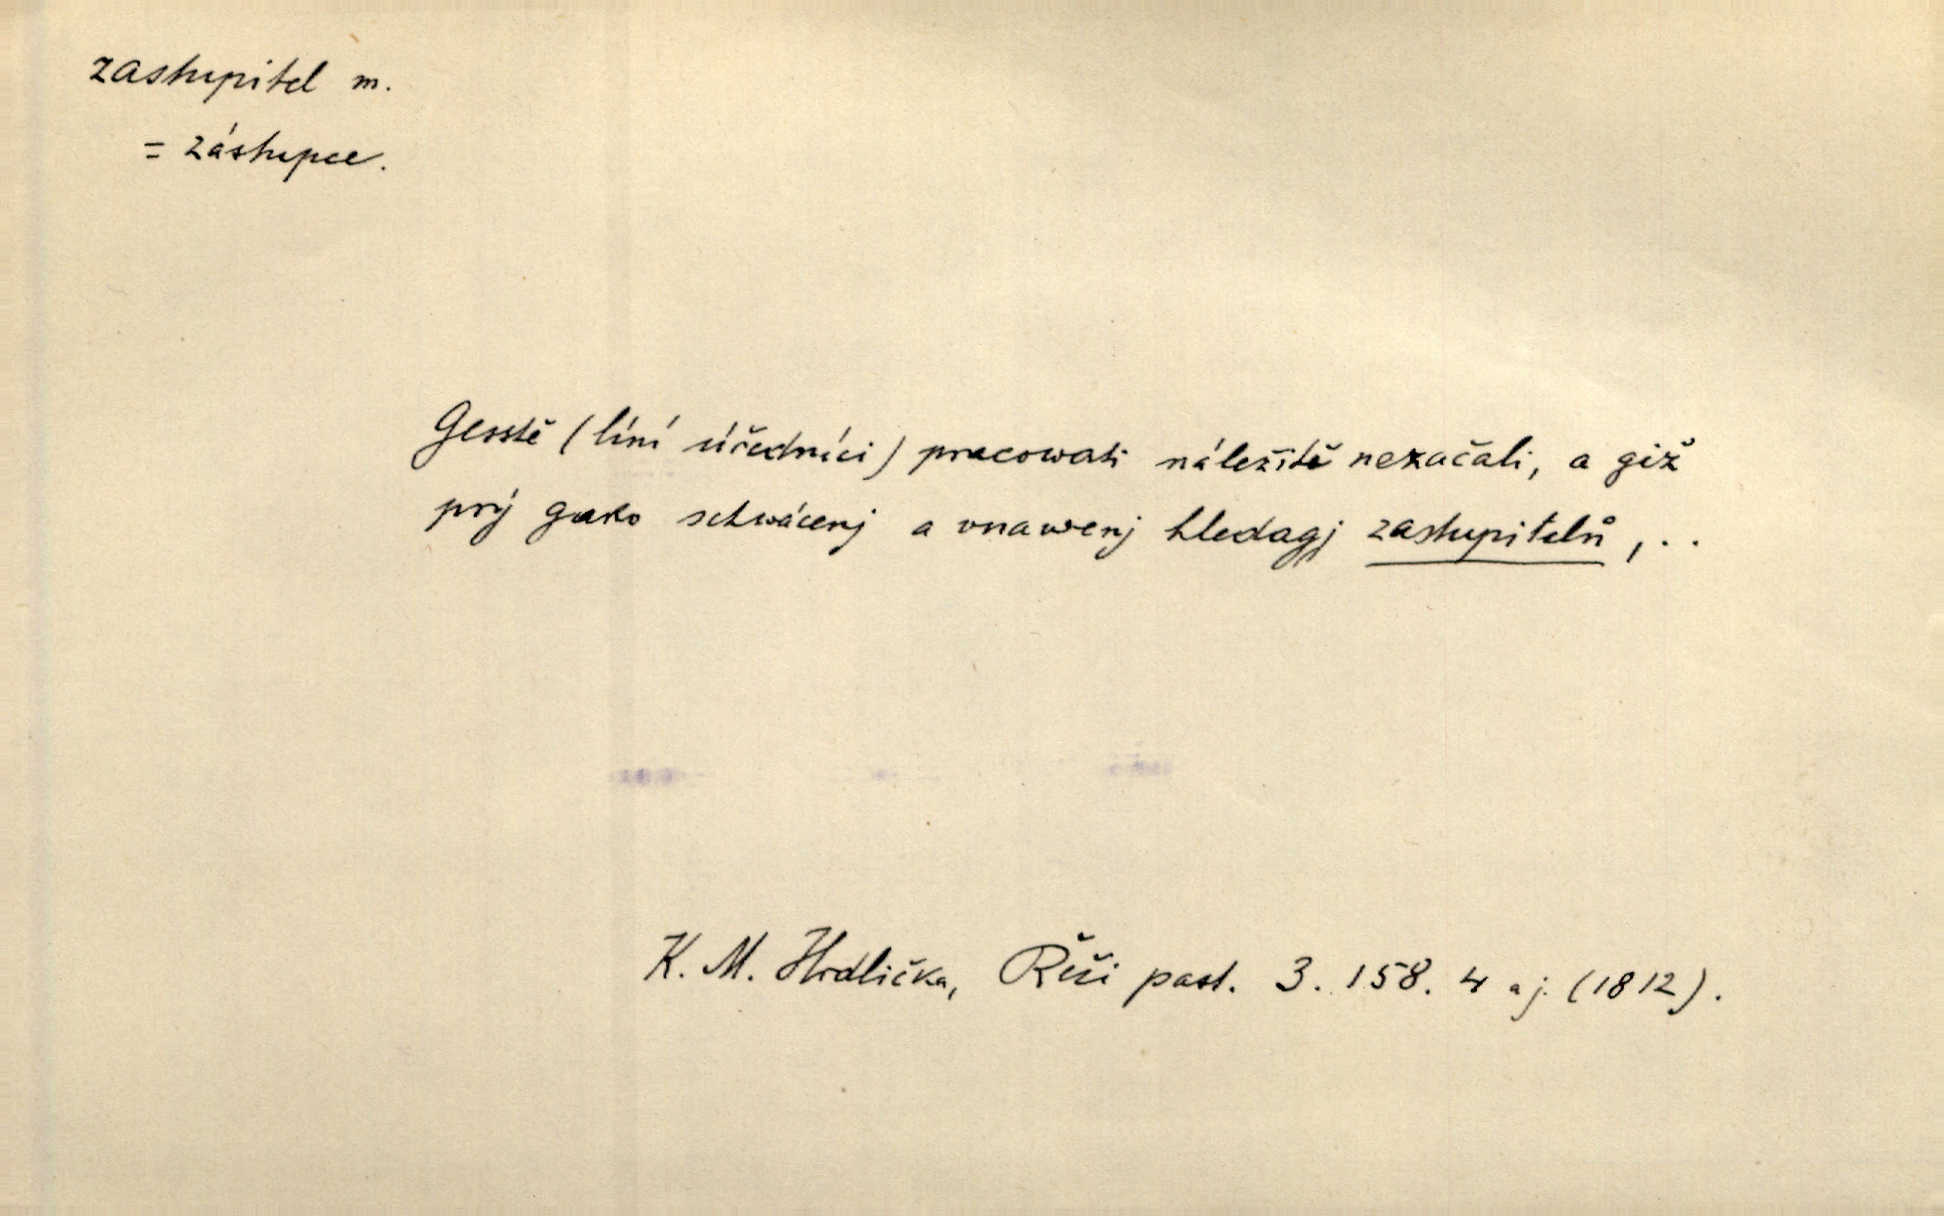 zastupitel m.
= zástupce.
Gesstě (líní úředníci) pracowati náležitě nezačali, a giž
prý gako schwácenj a vnawenj hledagj zastupitelů, ..
K. M. Hrdlička, Říši past. 3. 158. 4 a j. (1812).